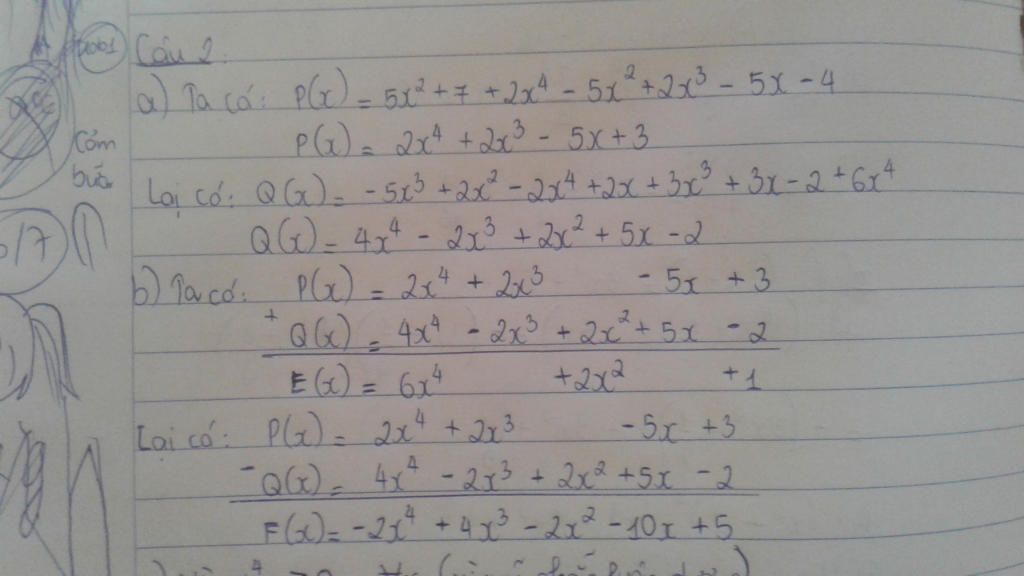 Câu 2:
a) Ta có: P(x) = 5x² + 7 + 2x⁴ - 5x² + 2x³ - 5x - 4
P(x) = 2x⁴ + 2x³ - 5x + 3
Cóm
búa
Lại có: Q(x) = -5x³ + 2x² - 2x⁴ + 2x + 3x³ + 3x - 2 + 6x⁴
Q(x) = 4x⁴ - 2x³ + 2x² + 5x - 2
b) Ta có: P(x) = 2x⁴ + 2x³ - 5x + 3
+ Q(x) = 4x⁴ - 2x³ + 2x² + 5x - 2
E(x) = 6x⁴ + 2x² + 1
Lại có: P(x) = 2x⁴ + 2x³ - 5x + 3
- Q(x) = 4x⁴ - 2x³ + 2x² + 5x - 2
F(x) = -2x⁴ + 4x³ - 2x² - 10x + 5